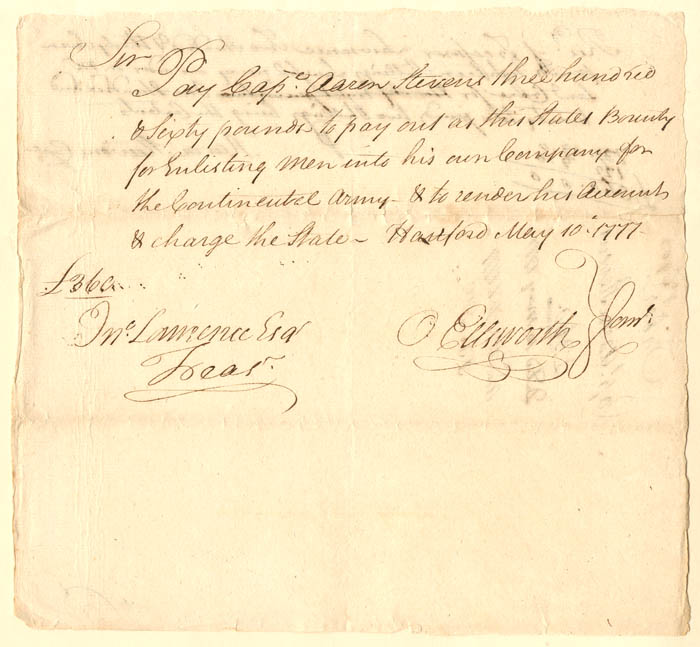 Sir
Pay Capt. Aaron Stevens three hundred
& Sixty pounds to pay out as this States Bounty
for Enlisting Men into his own Company for
the Continental Army - & to render his Account
& charge the State - Hartford May 10. 1777
£360
Jno. Lawrence Esqr
Treasr.
O Ellsworth } Comt.